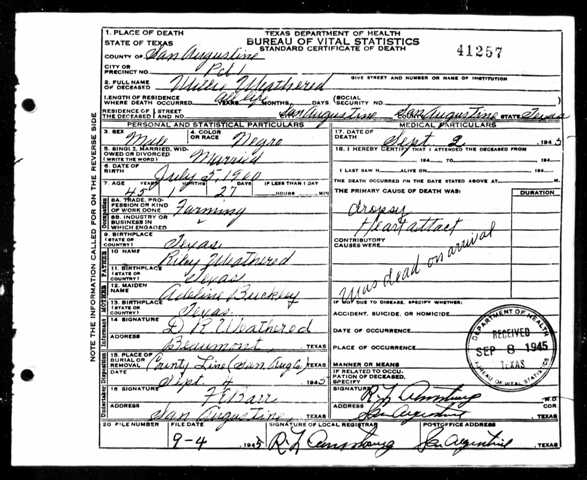 TEXAS DEPARTMENT OF HEALTH
BUREAU OF VITAL STATISTICS
STANDARD CERTIFICATE OF DEATH
41257
1. PLACE OF DEATH
STATE OF TEXAS
COUNTY OF San Augustine
CITY OR
PRECINCT NO. Pct 1
GIVE STREET AND NUMBER OR NAME OF INSTITUTION
2. FULL NAME
OF DECEASED Weathered
LENGTH OF RESIDENCE
WHERE DEATH OCCURRED YEARS MONTHS, DAYS (SOCIAL
SECURITY NO.
RESIDENCE OF STREET
THE DECEASED AND NO. San Augustine San Augustine STATE Texas
PERSONAL AND STATISTICAL PARTICULARS
MEDICAL PARTICULARS
3. SEX Male
4. COLOR
OR RACE Negro
5. SINGLE, MARRIED, WID-
OWED OR DIVORCED
(WRITE THE WORD) Married
6. DATE OF
BIRTH July 5, 1900
7. AGE 45 YEARS 1 MONTHS 27 DAYS IF LESS THAN 1 DAY
HOURS MIN
8A. TRADE, PRO-
FESSION OR KIND
OF WORK DONE Farming
8B. INDUSTRY OR
BUSINESS IN
WHICH ENGAGED
9. BIRTHPLACE
(STATE OR
COUNTRY) Texas
FATHER
10 NAME Riley Weathered
11. BIRTHPLACE
(STATE OR
COUNTRY) Texas
MOTHER
12. MAIDEN
NAME Adeline Buckley
13. BIRTHPLACE
(STATE OR
COUNTRY) Texas
14 SIGNATURE D. R. Weathered
ADDRESS Beaumont, TEXAS
15. PLACE OF
BURIAL OR
REMOVAL County Line (San Aug Co) TEXAS
DATE Sept. 4 1945
16 SIGNATURE
ADDRESS San Augustine TEXAS
17. DATE OF
DEATH Sept. 2 1945
18. I HEREBY CERTIFY THAT I ATTENDED THE DECEASED FROM
194 TO 194
I LAST SAW ALIVE ON 194
THE DEATH OCCURRED ON THE DATE STATED ABOVE AT M.
THE PRIMARY CAUSE OF DEATH WAS:
DURATION
dropsy
Heart attact
CONTRIBUTORY
CAUSES WERE
was dead on arrival
IF NOT DUE TO DISEASE, SPECIFY WHETHER:
ACCIDENT, SUICIDE, OR HOMICIDE
DATE OF OCCURRENCE
PLACE OF OCCURRENCE
MANNER OR MEANS
IF RELATED TO OCCU-
PATION OF DECEASED,
SPECIFY
SIGNATURE
M.D.
COR
ADDRESS San Augustine TEXAS
DEPARTMENT OF HEALTH
RECEIVED
SEP 8 1945
TEXAS
BUREAU OF VITAL STATISTICS
20 FILE NUMBER
FILE DATE
SIGNATURE OF LOCAL REGISTRAR
POSTOFFICE ADDRESS
9-4 1945 San Augustine TEXAS
NOTE THE INFORMATION CALLED FOR ON THE REVERSE SIDE